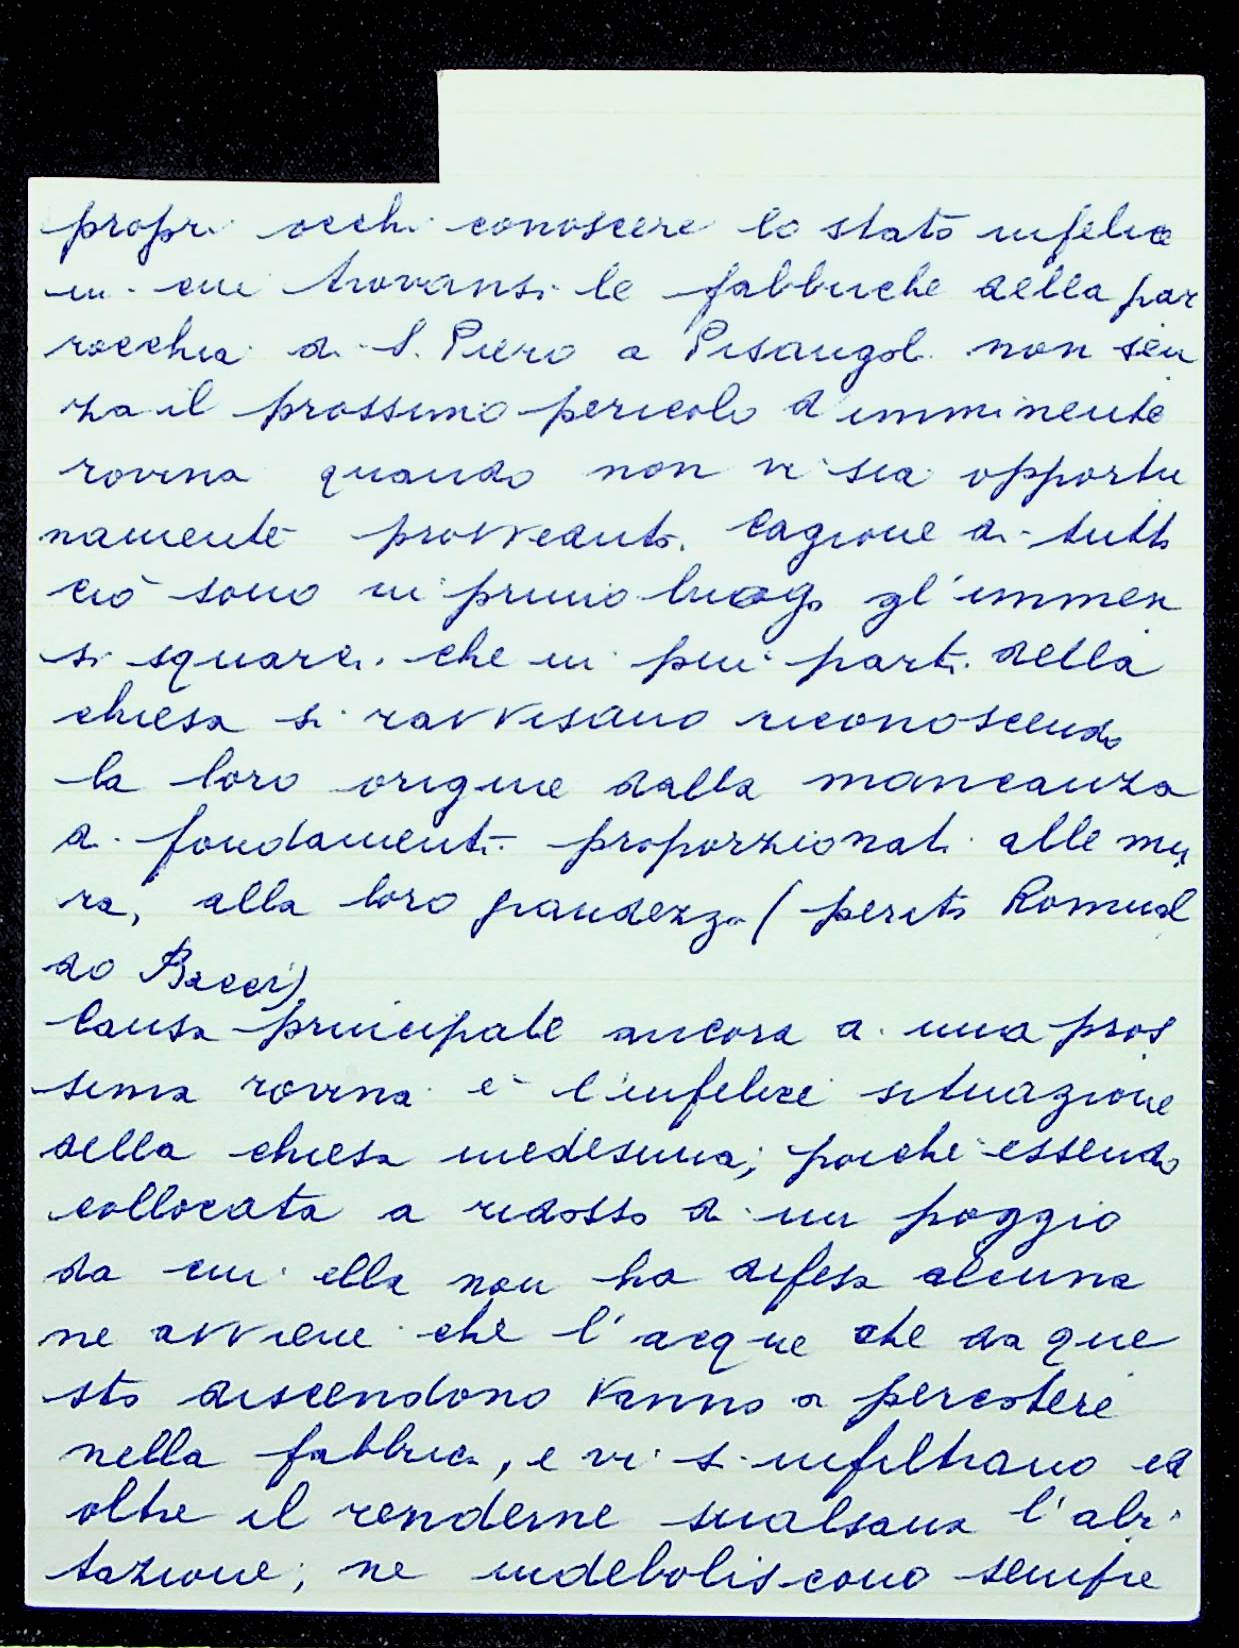 propri occhi conoscere lo stato infelice
in cui trovansi le fabbriche della par
rocchia di S. Piero a Pisangoli non sen
za il prossimo pericolo d imminente
rovina quando non vi sia opportu
namente provveduto. Cagione di tutto
ciò sono in primo luogo gl'immen
si squarci che in più parti della
chiesa si ravvisano riconoscendo
la loro origine dalla mancanza
di fondamenti proporzionati alle mu
ra, alla loro grandezza (perito Romual
do Bacci)
Causa principale ancora di una pros
sima rovina è l'infelice situazione
della chiesa medesima; poiché essendo
collocata a ridosso di un poggio
da cui ella non ha difesa alcuna
ne avviene che l'acque che da que
sto discendono vanno a percotere
nella fabbrica, e vi si infiltrano ed
oltre il renderne smalsana l'abi
tazione, ne indeboliscono sempre